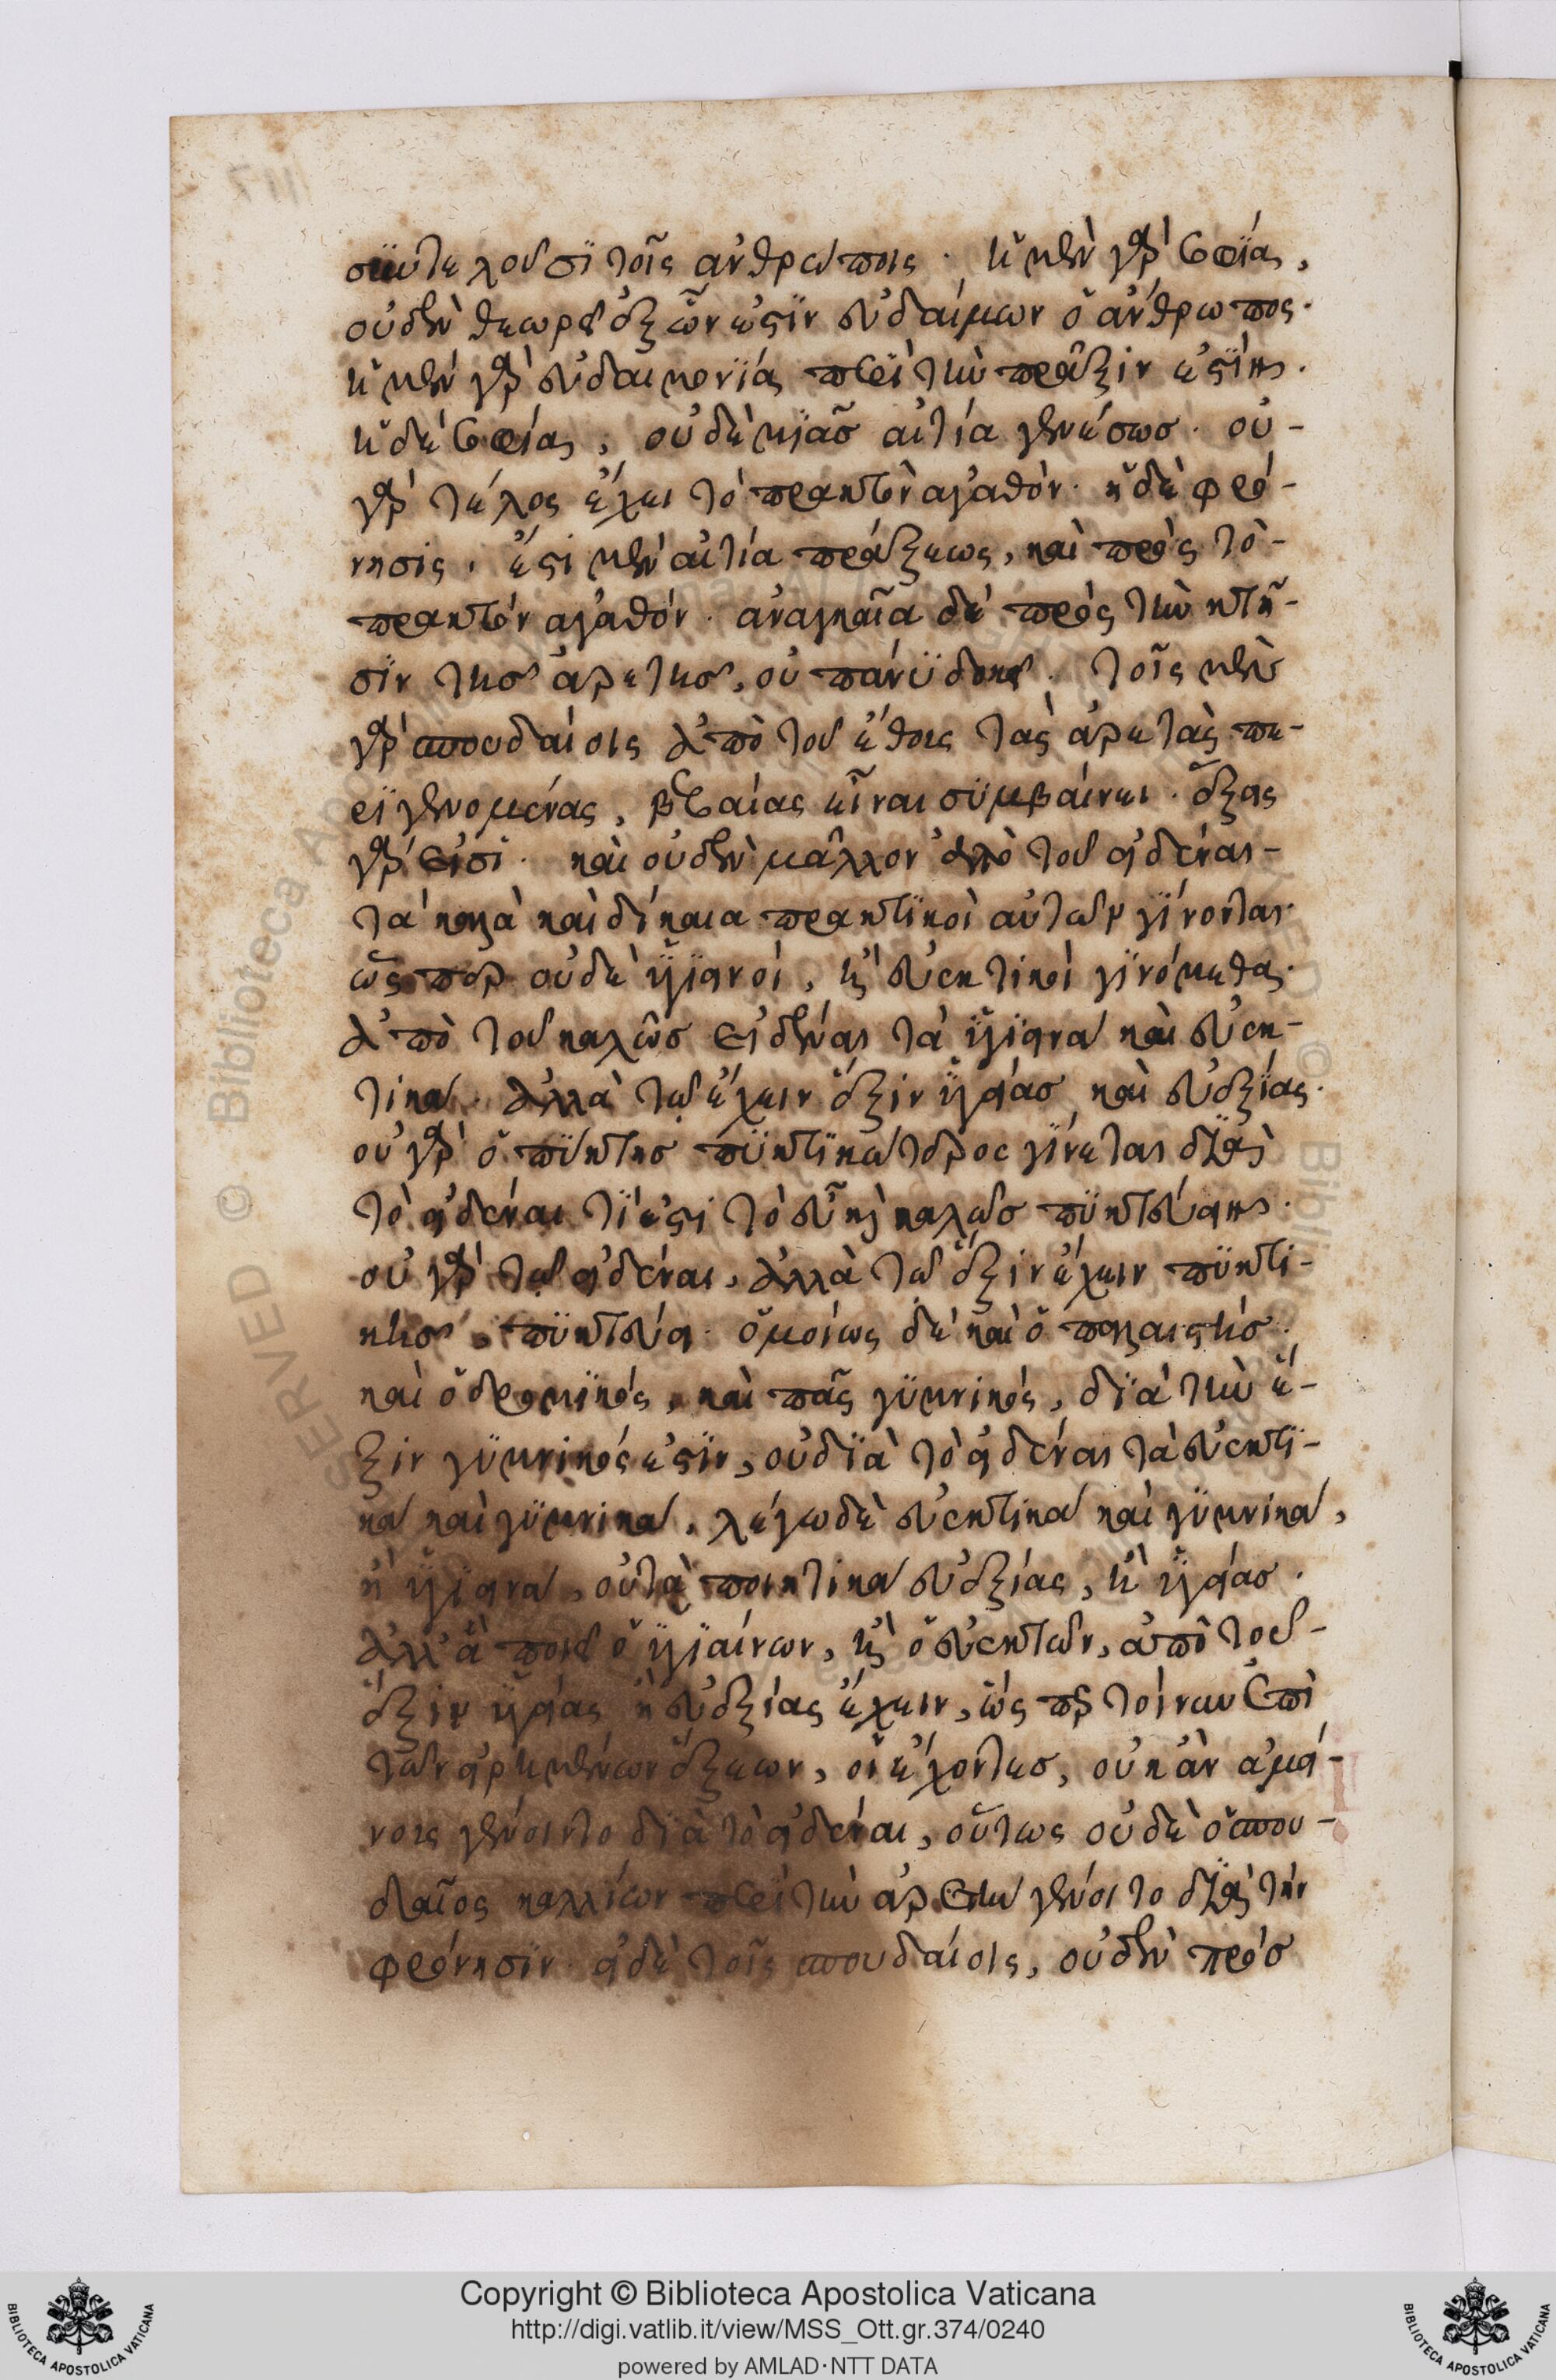 συντελοῦσι τοῖς ἀνθρώποις. ἡ μὲν γὰρ σοφία,
οὐδὲν θεωρεῖ ἐξ ὧν ἐστὶν εὐδαίμων ὁ ἄνθρωπος.
ἡ μὲν γὰρ εὐδαιμονία περὶ τὴν πρᾶξιν ἐστίν.
ἡ δὲ σοφία, οὐδεμιᾶς αἰτία γενέσεως. οὐ-
γὰρ τέλος ἔχει τὸ πρακτὸν ἀγαθόν. ἡ δὲ φρό-
νησις, ἔστι μὲν αἰτία πράξεως, καὶ πρὸς τὸ-
πρακτὸν ἀγαθόν. ἀναγκαῖα δὲ πρὸς τὴν κτῆ-
σιν τῆς ἀρετῆς, οὐ πάνυ δοκεῖ. τοῖς μὲν
γὰρ σπουδαίοις ἀπὸ τοῦ ἔθους τὰς ἀρετὰς πε-
ριγενομένας, βεβαίας εἶναι συμβαίνει. ἕξεις
γὰρ εἰσί. καὶ οὐδὲν μᾶλλον ἀπὸ τοῦ εἰδέναι-
τὰ καλὰ καὶ δίκαια πρακτικοὶ αὐτῶν γίνονται.
ὥσπερ οὐδὲ ὑγιεινοί, καὶ εὐεκτικοὶ γινόμεθα.
ἀπὸ τοῦ καλῶς εἰδέναι τὰ ὑγιεινὰ καὶ εὐεκ-
τικά. ἀλλὰ τῷ ἔχειν ἕξιν ὑγείας καὶ εὐεξίας.
οὐ γὰρ ὁ πύκτης πυκτικώτερος γίνεται διὰ
τὸ εἰδέναι τί ἐστι τὸ εὖ καὶ καλῶς πυκτεύειν.
οὐ γὰρ τῷ εἰδέναι, ἀλλὰ τῷ ἕξιν ἔχειν πυκτι-
κῆς, πυκτεύει. ὁμοίως δὲ καὶ ὁ παλαιστής.
καὶ ὁ δρομικός, καὶ πᾶς γυμνικός, διὰ τὴν ἕ-
ξιν γυμνικός ἐστιν, οὐ διὰ τὸ εἰδέναι τὰ εὐεκτι-
κὰ καὶ γυμνικά. λέγω δὲ εὐεκτικὰ καὶ γυμνικά,
ἢ ὑγιεινά, οὐ τὰ ποιητικὰ εὐεξίας, ἢ ὑγείας.
ἀλλ' ἃ ποιεῖ ὁ ὑγιαίνων, καὶ ὁ εὐεκτῶν, ἀπὸ τοῦ-
ἕξιν ὑγείας ἢ εὐεξίας ἔχειν, ὥσπερ τοίνυν ἐπὶ
τῶν εἰρημένων ἕξεων, οἱ ἔχοντες, οὐκ ἂν ἀμεί-
νους γένοιντο διὰ τὸ εἰδέναι, οὕτως οὐδὲ ὁ σπου-
δαῖος καλλίων περὶ τὴν ἀρετὴν γένοιτο διὰ τὴν
φρόνησιν. εἰ δὲ τοῖς σπουδαίοις, οὐδὲν πρὸς
Copyright © Biblioteca Apostolica Vaticana
http://digi.vatlib.it/view/MSS_Ott.gr.374/0240
powered by AMLAD·NTT DATA
BIBLIOTECA APOSTOLICA VATICANA
BIBLIOTECA APOSTOLICA VATICANA